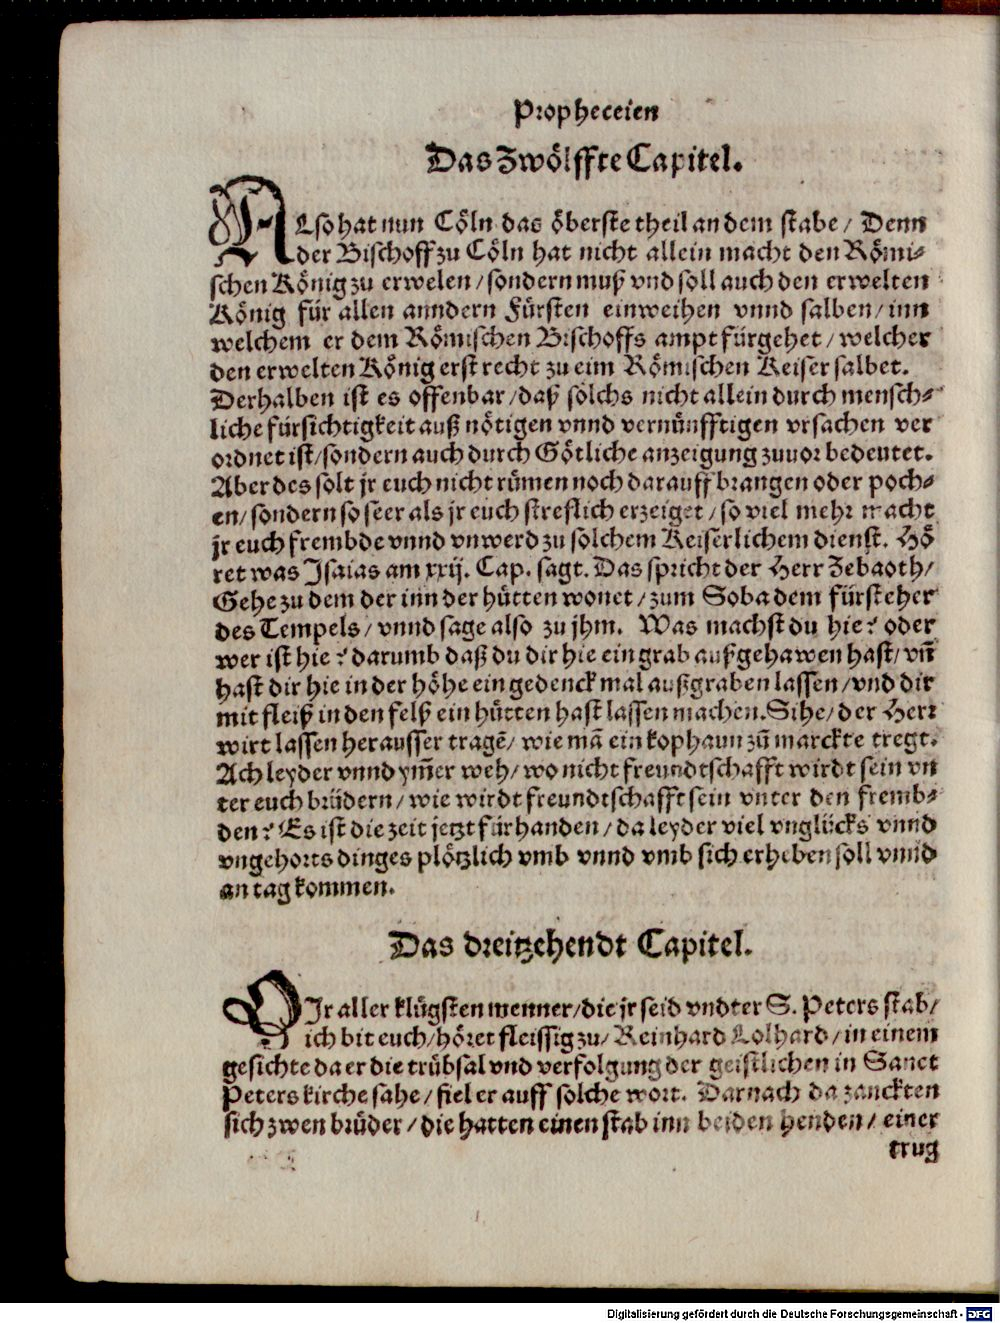 Propheceien
Das Zwölffte Capitel.
ALso hat nun Cöln das öberste theil an dem stabe / Denn
der Bischoff zu Cöln hat nicht allein macht den Römi⸗
schen König zu erwelen / sondern muß vnd soll auch den erwelten
König für allen anndern Fürsten einweihen vnnd salben / inn
welchem er dem Römischen Bischoffs ampt fürgehet / welcher
den erwelten König erst recht zu eim Römischen Keiser salbet.
Derhalben ist es offenbar / daß solchs nicht allein durch mensch⸗
liche fürsichtigkeit auß nötigen vnnd vernünfftigen vrsachen ver
ordnet ist / sondern auch durch Götliche anzeigung zuuor bedeutet.
Aber des solt jr euch nicht rümen noch darauff brangen oder poch⸗
en / sondern so seer als jr euch streflich erzeiget / so viel mehr macht
jr euch frembde vnnd vnwerd zu solchem Keiserlichem dienst. Hö
ret was Jsaias am xxij. Cap. sagt. Das spricht der Herr Zebaoth /
Gehe zu dem der inn der hütten wonet / zum Soba dem fürsteher
des Tempels / vnnd sage also zu jhm. Was machst du hie? oder
wer ist hie? darumb daß du dir hie ein grab außgehawen hast / vñ
hast dir hie in der höhe ein gedenck mal außgraben lassen / vnd dir
mit fleiß in den felß ein hütten hast lassen machen. Sihe / der Herr
wirt lassen herausser tragẽ / wie mã ein kophaun zũ marckte tregt.
Ach leyder vnnd ym̃er weh / wo nicht freundtschafft wirdt sein vn
ter euch brüdern / wie wirdt freundtschafft sein vnter den fremb⸗
den? Es ist die zeit jetzt fürhanden / da leyder viel vnglücks vnnd
vngehorts dinges plötzlich vmb vnnd vmb sich erheben soll vnnd
an tag kommen.
Das dreitzehendt Capitel.
OJr aller klügsten menner / die jr seid vndter S. Peters stab /
ich bit euch / höret fleissig zu / Reinhard Lolhard / in einem
gesichte da er die trübsal vnd verfolgung der geistlichen in Sanct
Peters kirche sahe / fiel er auff solche wort. Darnach da zanckten
sich zwen brüder / die hatten einen stab inn beiden henden / einer
trug
Digitalisierung gefördert durch die Deutsche Forschungsgemeinschaft - DFG